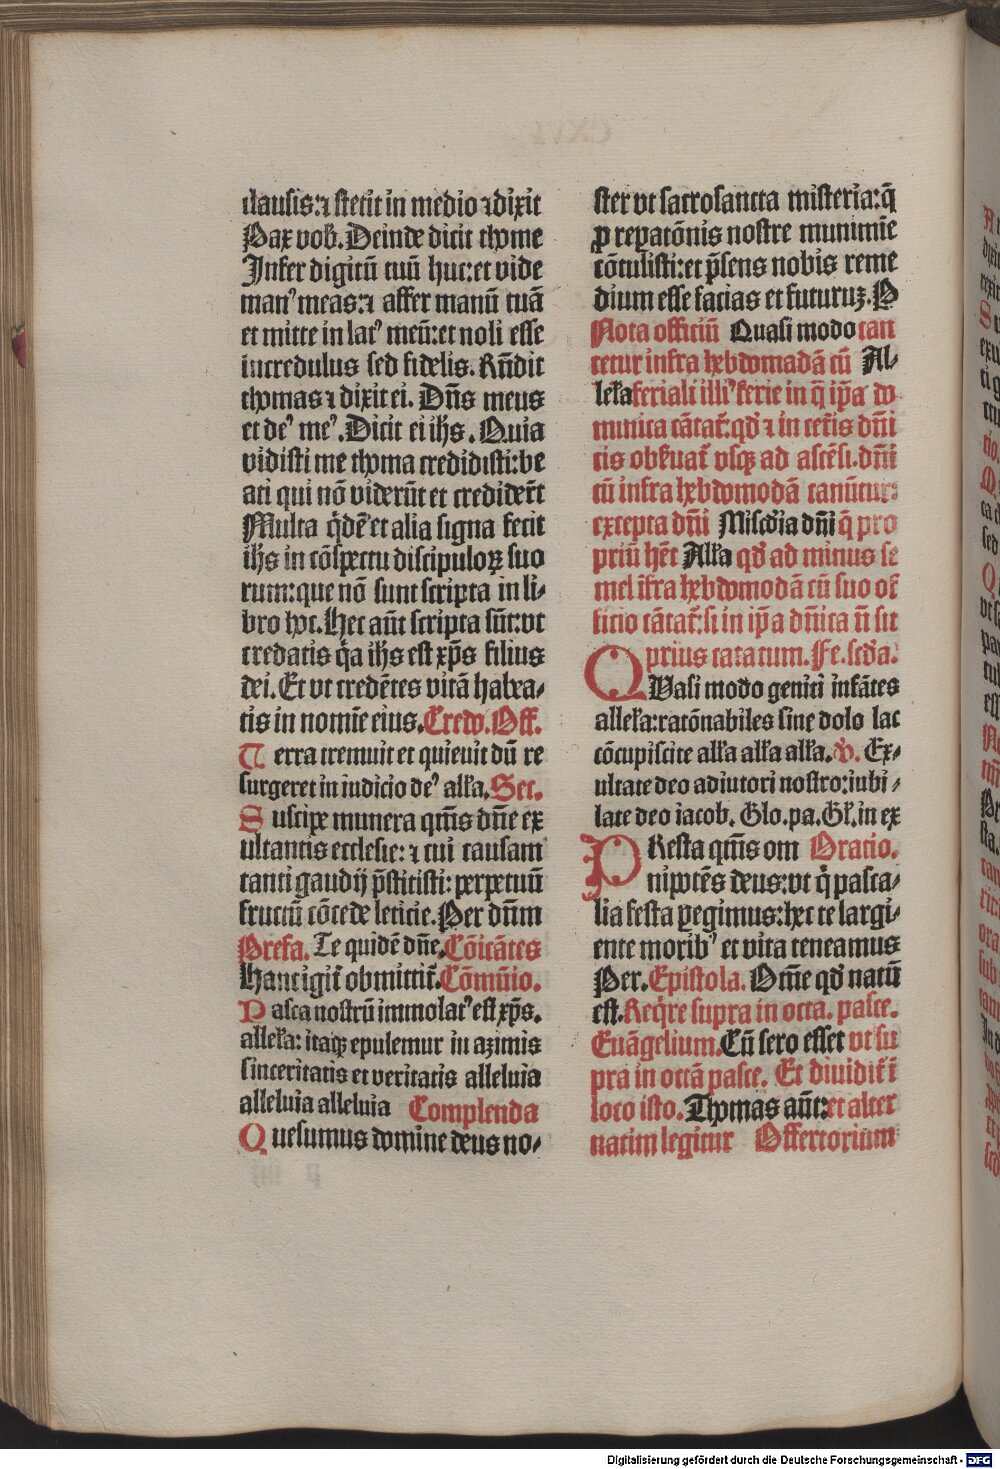 clausis: ⁊ stetit in medio ⁊ dixit
Pax vob. Deinde dicit thome
Infer digitū tuū huc: et vide
manꝰ meas: ⁊ affer manū tuā
et mitte in latꝰ meū: et noli esse
incredulus sed fidelis. Rn̄dit
thomas ⁊ dixit ei. Dn̄s meus
et deꝰ meꝰ. Dicit ei ihs. Quia
vidisti me thoma credidisti: be
ati qui nō viderūt et credidert̄
Multa q̄dē et alia signa fecit
ihs in cōspectu discipuloꝝ suo
rum: que nō sunt scripta in li⸗
bro hoc. Hec aūt scripta sūt: vt
credatis q̄a ihs est xp̄s filius
dei. Et vt credētes vitā habea⸗
tis in nomīe eius. Credo. Off.
Terra tremuit et quieuit dū re
surgeret in iudicio deꝰ alła. Sec.
Suscipe munera qm̄s dn̄e ex
ultantis ecclesie: ⁊ cui causam
tanti gaudij p̄stitisti: perpetuū
fructū cōcede leticie. Per dn̄m
Prefa. Te quidē dn̄e. Cōicātes
Hanc igit̄ obmittit̄. Cōmūio.
Pasca nostrū immolatꝰ est xp̄s.
alleła: itaqꝫ epulemur in azimis
sinceritatis et veritatis alleluia
alleluia alleluia Complenda
Quesumus domine deus no⸗
ster vt sacrosancta misteria: q̄
ꝓ repatōnis nostre munimīe
cōtulisti: et p̄sens nobis reme
dium esse facias et futuruꝫ. P
Nota officiū Quasi modo can
tetur infra hebdomadā cū Al⸗
leła feriali illiꝰ ferie in q̄ ip̄a do
minica cātat̄: qd̓ ⁊ in cet̄is dn̄i
cis obẜuat̄ vsqꝫ ad ascēsi. dn̄i
cū infra hebdomodā canūtur:
excepta dn̄i Misc̄dia dn̄i q̄ pro
priū hēt Alła qd̓ ad minus se
mel īfra hebdomodā cū suo of
ficio cātat̄: si in ip̄a dn̄ica n̄ sit
prius catatum. Fe. scd̓a.
QVasi modo geniti infātes
alleła: ratōnabiles sine dolo lac
cōcupiscite alła alła alła. ℣. Ex⸗
ultate deo adiutori nostro: iubi⸗
late deo iacob. Glo. pa. Gł. in ex
PResta qm̄s om Oratio.
nipotēs deus: vt q̄ pasca⸗
lia festa pegimus: hec te largi⸗
ente moribꝰ et vita teneamus
Per. Epistola. Om̄e qd̓ natū
est. Reqͥre supra in octa. pasce.
Euāgelium. Cū sero esset vt su
pra in octā pasce. Et diuidit̄ ī
loco isto. Thomas aūt: et alter
natim legitur Offertorium
Digitalisierung gefördert durch die Deutsche Forschungsgemeinschaft - DFG